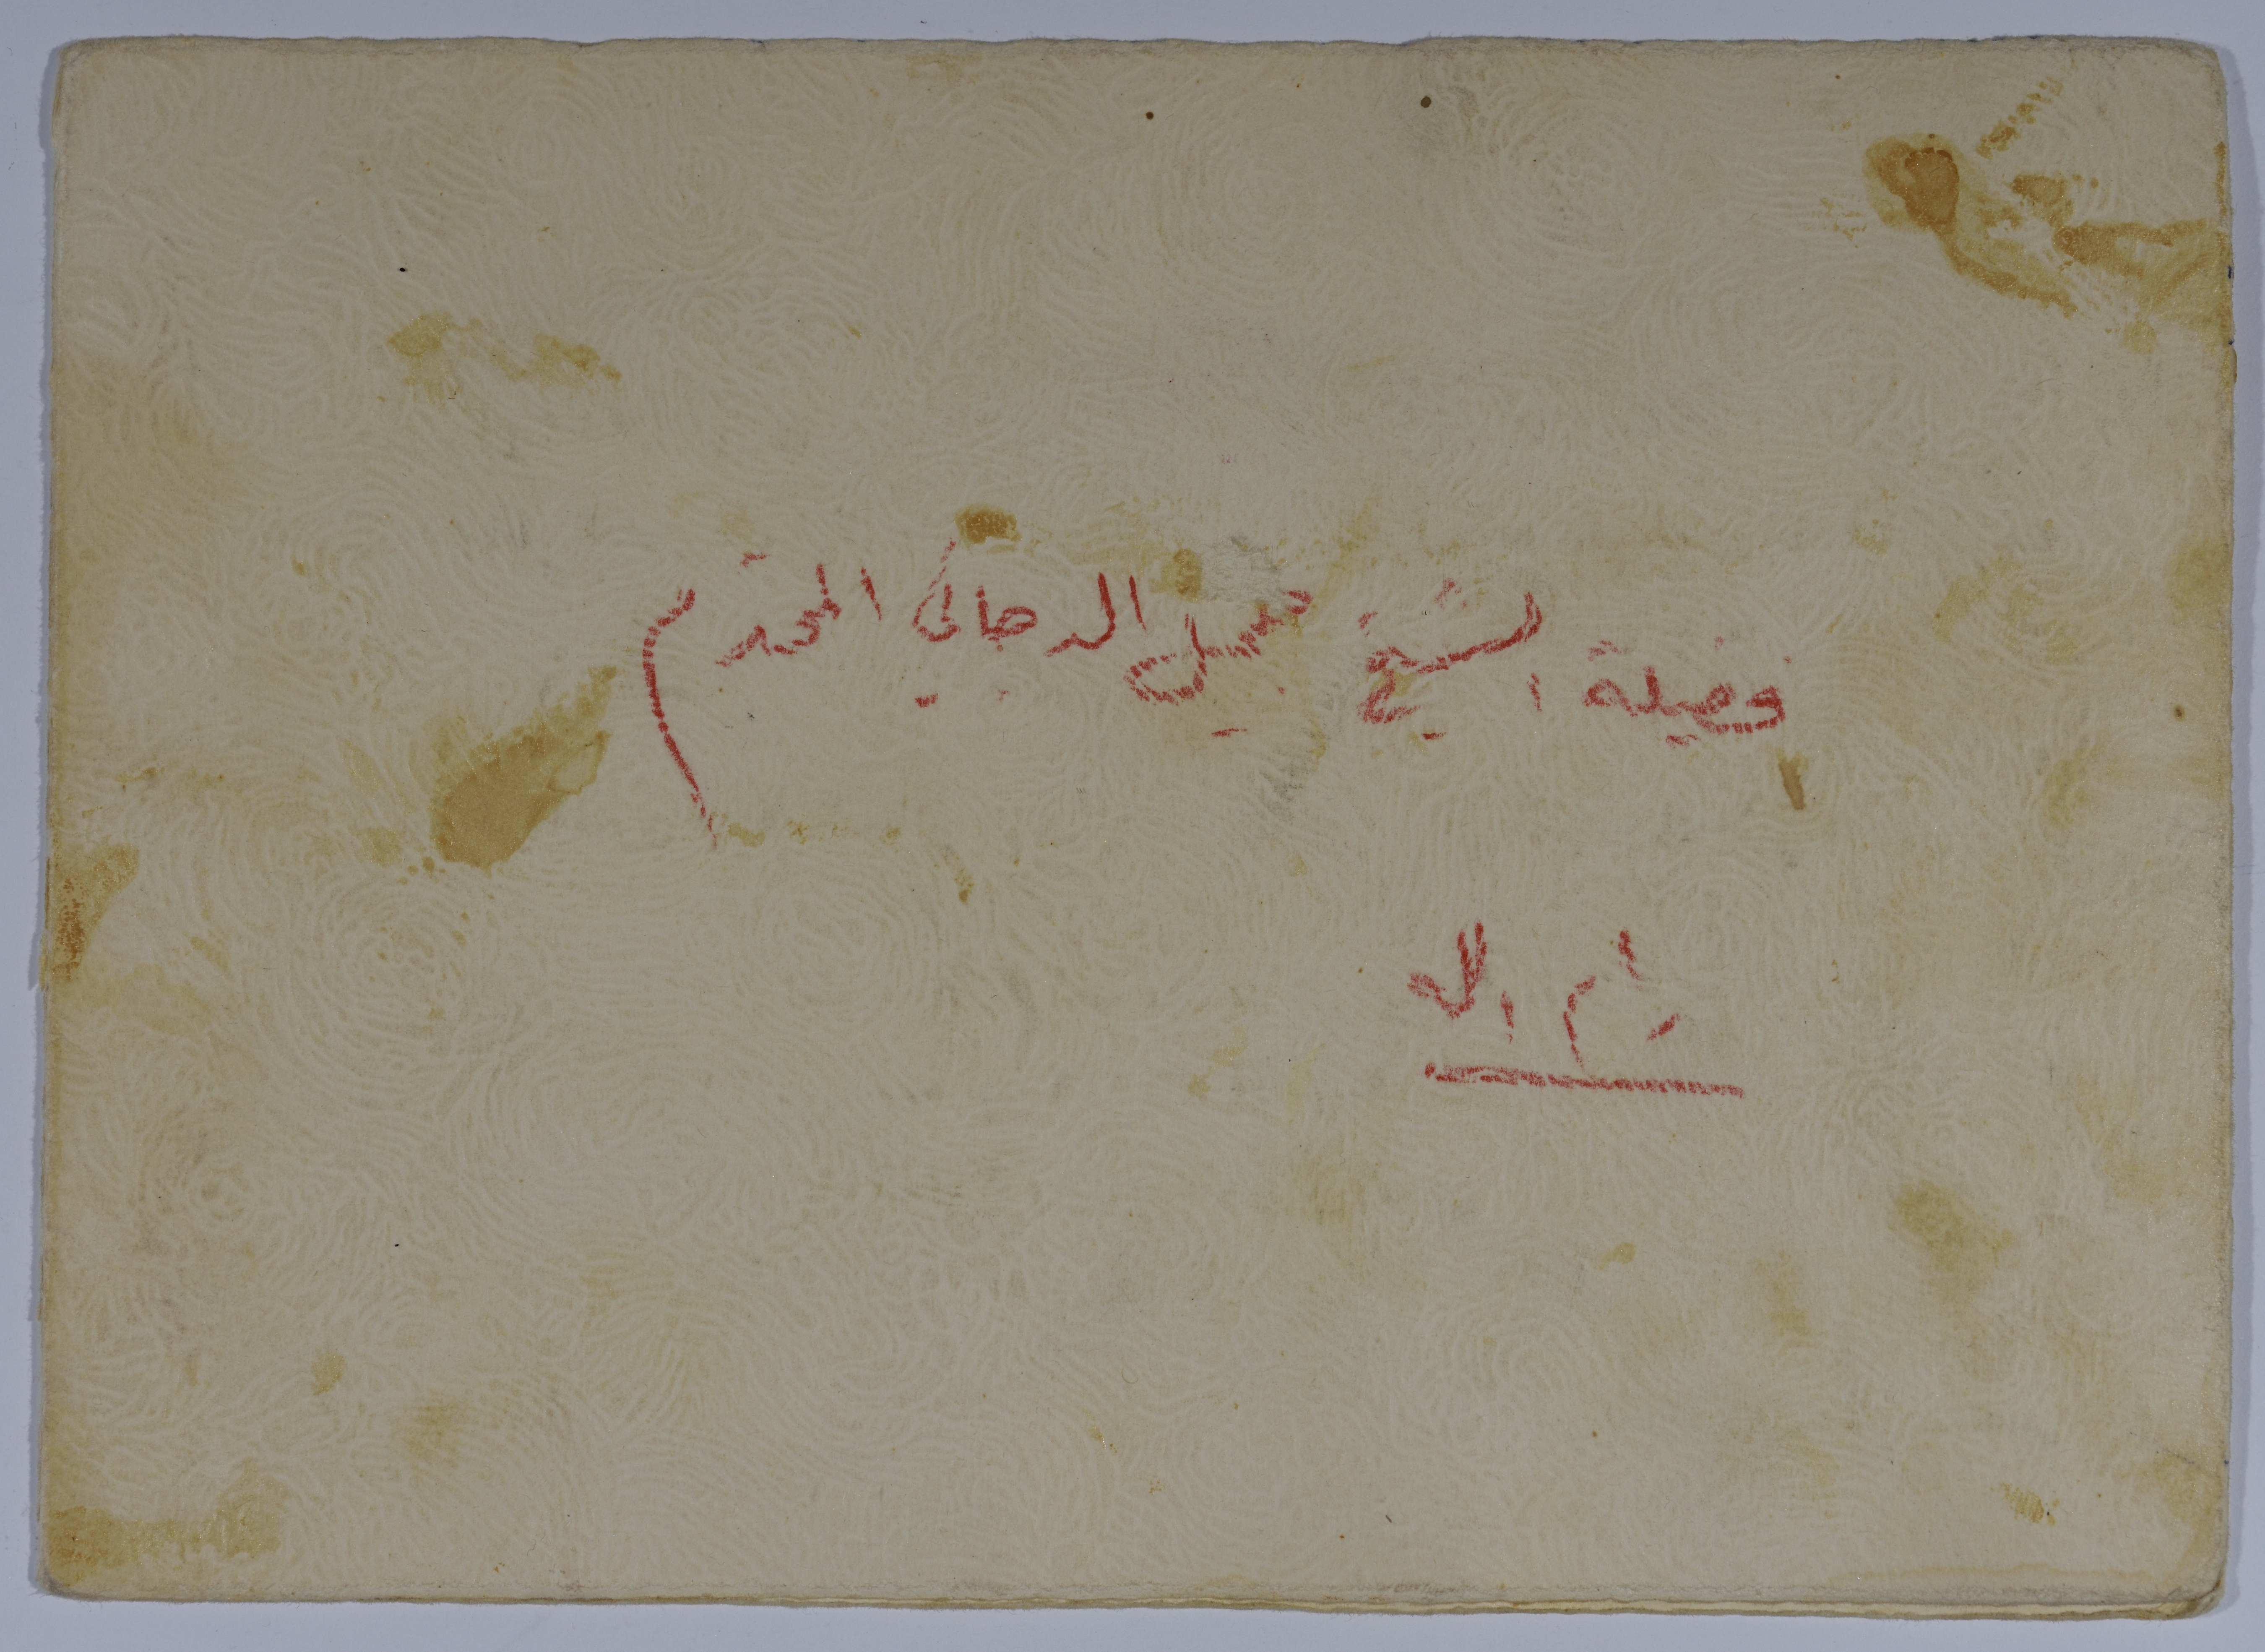 فضيلة الشيخ جميل الدجاني المحترم
رام الله